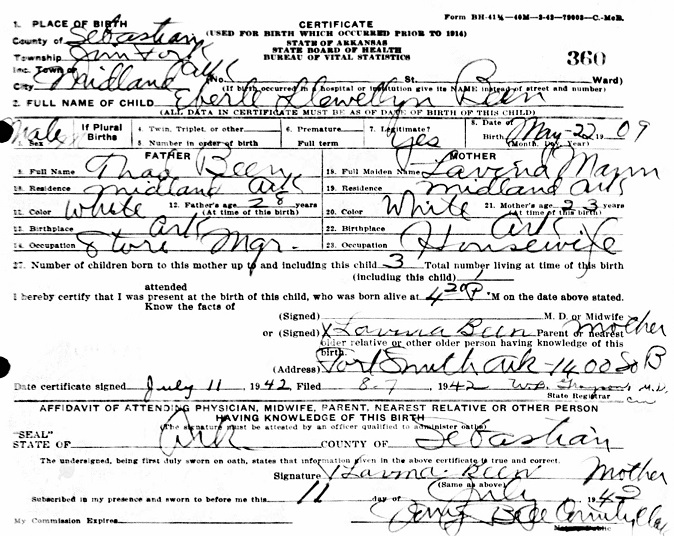 Form BH-41¼—40M—3-42—79003—C.-McB.
1. PLACE OF BIRTH CERTIFICATE
County of Sebastian (USED FOR BIRTH WHICH OCCURRED PRIOR TO 1914)
Township Jim Fork STATE OF ARKANSAS
STATE BOARD OF HEALTH
Inc. Town of BUREAU OF VITAL STATISTICS 360
City Midland Ark (No. St. Ward)
(If birth occurred in a hospital or institution give its NAME instead of street and number)
2. FULL NAME OF CHILD Eberle Llewellyn Been
(ALL DATA IN CERTIFICATE MUST BE AS OF DATE OF BIRTH OF THIS CHILD)
Male If Plural 4. Twin, Triplet, or other 6. Premature 7. Legitimate? 8. Date of
3. Sex Births 5. Number in order of birth Full term Yes Birth May - 22, 1909
(Month, Day, Year)
FATHER MOTHER
9. Full Name Thos Been 18. Full Maiden Name Lavina Mann
10. Residence Midland Ark 19. Residence Midland Ark
11. Color White 12. Father's age 28 years 20. Color White 21. Mother's age 23 years
(At time of this birth) (At time of this birth)
13. Birthplace Ark 22. Birthplace Ark
14. Occupation Store Mgr. 23. Occupation Housewife
27. Number of children born to this mother up to and including this child 3 Total number living at time of this birth
(including this child) 1
attended
I hereby certify that I was present at the birth of this child, who was born alive at 4 20 P. M on the date above stated.
Know the facts of
(Signed) M. D. or Midwife
or (Signed) X Lavina Been Parent or nearest Mother
older relative or other older person having knowledge of this
birth.
(Address) Fort Smith Ark - 1400 So B
Date certificate signed July 11, 1942 Filed 8-7, 1942 W.B. M.D.
State Registrar
AFFIDAVIT OF ATTENDING PHYSICIAN, MIDWIFE, PARENT, NEAREST RELATIVE OR OTHER PERSON
HAVING KNOWLEDGE OF THIS BIRTH
"SEAL" (The signature must be attested by an officer qualified to administer oaths)
STATE OF Ark COUNTY OF Sebastian
The undersigned, being first duly sworn on oath, states that information given in the above certificate is true and correct.
Signature X Lavina Been Mother
(Same as above)
Subscribed in my presence and sworn to before me this 11 day of July 1942
My Commission Expires County Clk
Notary Public